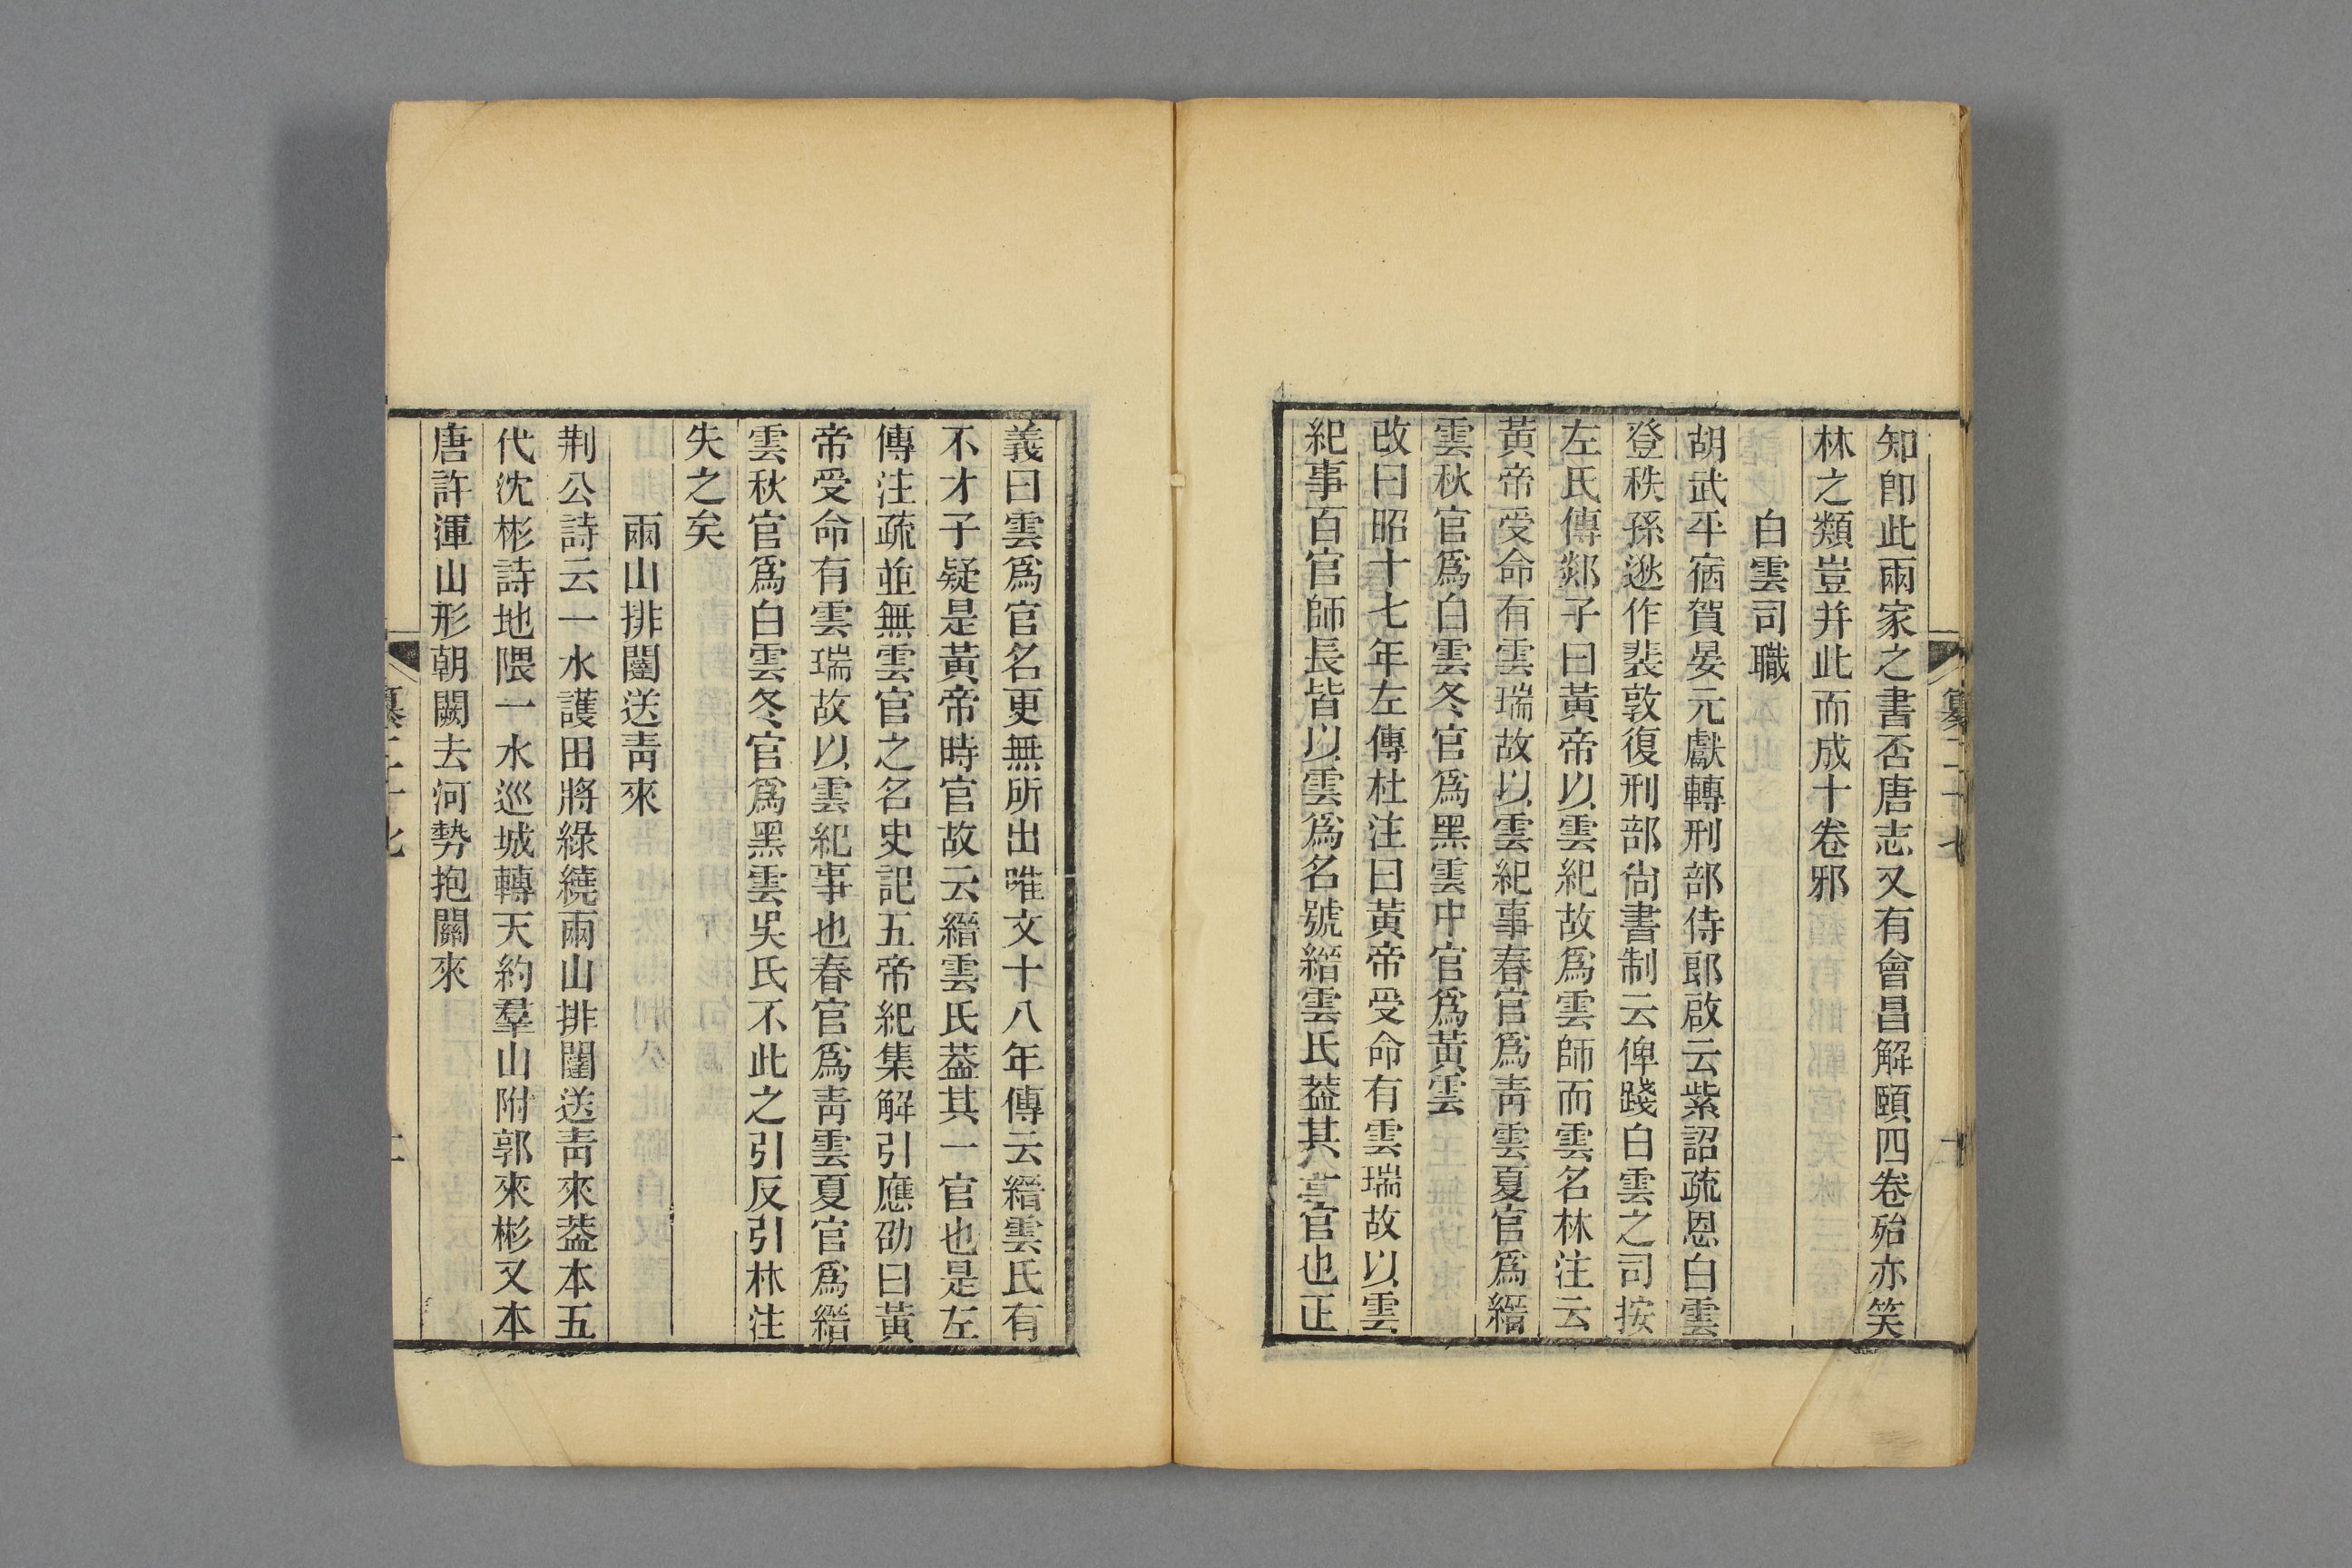 知卽此兩家之書否唐志又有會昌解頤四卷殆亦笑
林之類豈并此而成十卷邪
白雲司職
胡武平宿賀晏元獻轉刑部侍郎啟云紫詔疏恩白雲
登秩孫逖作裴敦復刑部尙書制云俾踐白雲之司按
左氏傳郯子曰黃帝以雲紀故爲雲師而雲名林注云
黃帝受命有雲瑞故以雲紀事春官爲靑雲夏官爲縉
雲秋官爲白雲冬官爲黑雲中官爲黃雲
改曰昭十七年左傳杜注曰黃帝受命有雲瑞故以雲
紀事百官師長皆以雲爲名號縉雲氏葢其官也正
義曰雲爲官名更無所出唯文十八年傳云縉雲氏有
不才子疑是黃帝時官故云縉雲氏葢其一官也是左
傳注疏並無雲官之名史記五帝紀集解引應劭曰黃
帝受命有雲瑞故以雲紀事也春官爲靑雲夏官爲縉
雲秋官爲白雲冬官爲黑雲吳氏不此之引反引林注
失之矣
兩山排闥送靑來
荆公詩云一水護田將綠繞兩山排闥送靑來葢本五
代沈彬詩地隈一水巡城轉天約羣山附郭來彬又本
唐許渾山形朝闕去河勢抱關來